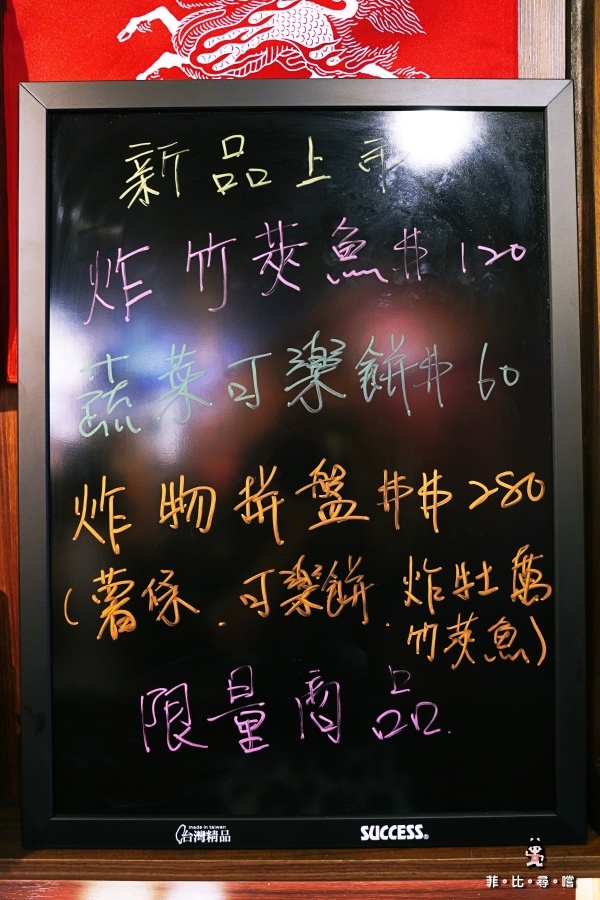 新品上市
炸竹莢魚$120
蔬菜可樂餅$60
炸物拼盤$$280
(薯條.可樂餅.炸牡蠣
竹莢魚)
限量商品.
made in taiwan
台灣精品
SUCCESS®
菲·比·尋·嚐